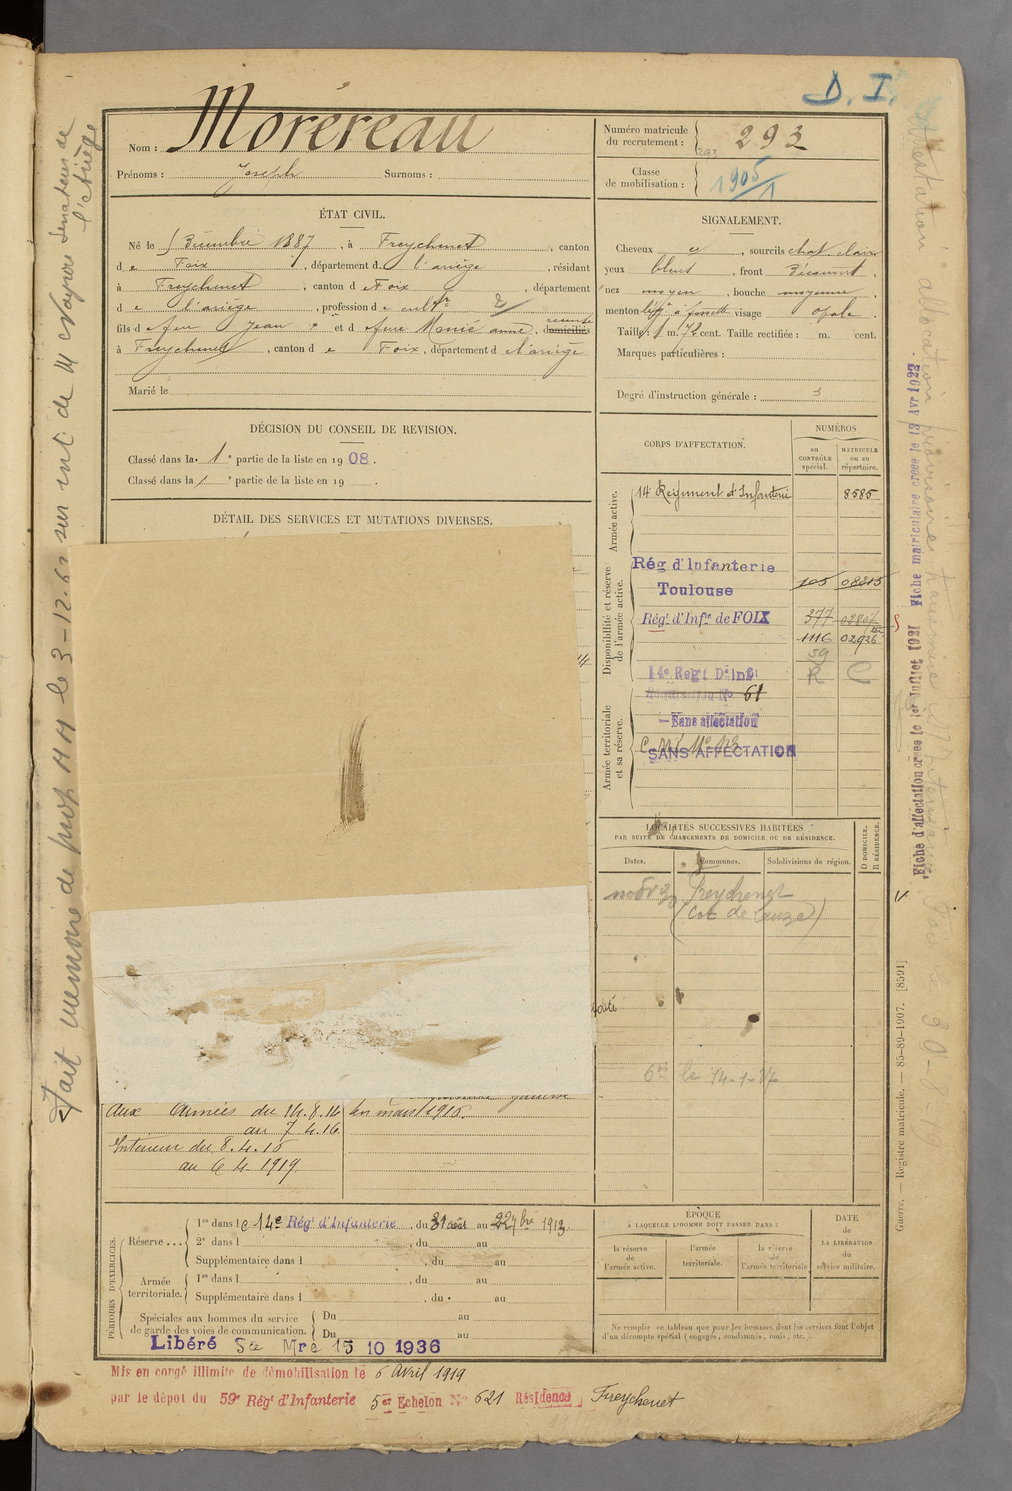 D. I.
Nom : Moréreau
Prénoms : Joseph Surnoms :
Numéro matricule du recrutement : 293
293
Classe de mobilisation : 1905/1
ÉTAT CIVIL.
Né le 5 Décembre 1887, à Freychenet, canton
de Foix, département de l'ariège, résidant
à Freychenet, canton de Foix, département
de l'ariège, profession de cultr
fils de feu Jean et de feue Manié anne, domiciliés
à Freychenet, canton de Foix, département de l'ariège
Marié le
SIGNALEMENT.
Cheveux, sourcils chat. clairs
yeux bleus, front Découvert,
nez moyen, bouche moyenne,
menton à fossette visage ovale.
Taille: 1 m. 72 cent. Taille rectifiée : m. cent.
Marques particulières :
Degré d'instruction générale : 3
DÉCISION DU CONSEIL DE REVISION.
Classé dans la 1e partie de la liste en 1908.
Classé dans la e partie de la liste en 19 .
DÉTAIL DES SERVICES ET MUTATIONS DIVERSES.
CORPS D'AFFECTATION.
NUMÉROS
au CONTRÔLE spécial.
MATRICULE ou au répertoire.
Armée active.
14 Régiment d'Infanterie 8585
Disponibilité et réserve de l'armée active.
Rég d'Infanterie
Toulouse 105 08215
Régt d'Infie de FOIX 377
1116 02926
59
14e Regt D'Inf R C
61
Armée territoriale et sa réserve.
Sans affectation
SANS AFFECTATION
LOCALITÉS SUCCESSIVES HABITÉES
PAR SUITE DE CHANGEMENTS DE DOMICILE OU DE RÉSIDENCE.
Dates. Communes. Subdivisions de région. D DOMICILE. R RÉSIDENCE.
Freychenet
le 14-1-37
Aux Armées du 14.8.14
au 7.4.16
Intérieur du 8.4.16
au 6 4. 1919
en mars 1916.
PÉRIODES D'EXERCICES.
Réserve ... 1re dans le 14e Régt d'Infanterie, du 31 août au 22 7bre 1913
2e dans l , du au
Supplémentaire dans l , du au
Armée territoriale. 1re dans l , du au
Supplémentaire dans l , du au
Spéciales aux hommes du service de garde des voies de communication. Du au
Du au
Libéré Sce Mre 15 10 1936
ÉPOQUE
À LAQUELLE L'HOMME DOIT PASSER DANS :
la réserve de l'armée active.
l'armée territoriale.
la réserve de l'armée territoriale
DATE de LA LIBÉRATION du service militaire.
Ne remplir ce tableau que pour les hommes dont les services font l'objet
d'un décompte spécial (engagés, condamnés, omis, etc.).
Mis en congé illimité de démobilisation le 6 Avril 1919
par le dépôt du 59e Régt d'Infanterie 5er Echelon No 621 Résidence Freychenet
Fait mémoire de prop MM le 3-12-62 sur int de M Nayrou Sénateur de
l'Ariège
Fiche d'affectation créée le 1er Juillet 1927
Fiche matriculaire créée le 13 Avr 1922.
Guerre. — Registre matricule. — 85-89-1907. [8591]